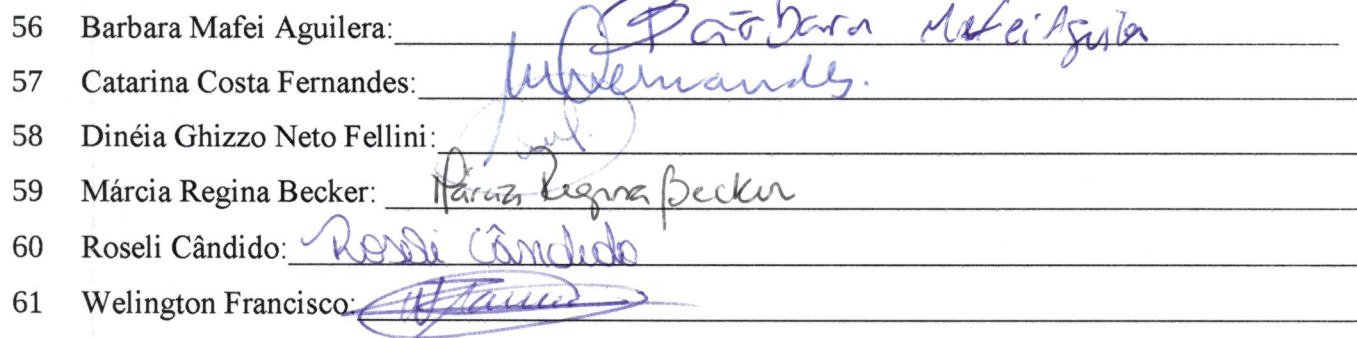 56 Barbara Mafei Aguilera: Bárbara Mafei Aguilera
57 Catarina Costa Fernandes: Fernandes.
58 Dinéia Ghizzo Neto Fellini:
59 Márcia Regina Becker: Márcia Regina Becker
60 Roseli Cândido: Roseli Cândido
61 Welington Francisco: